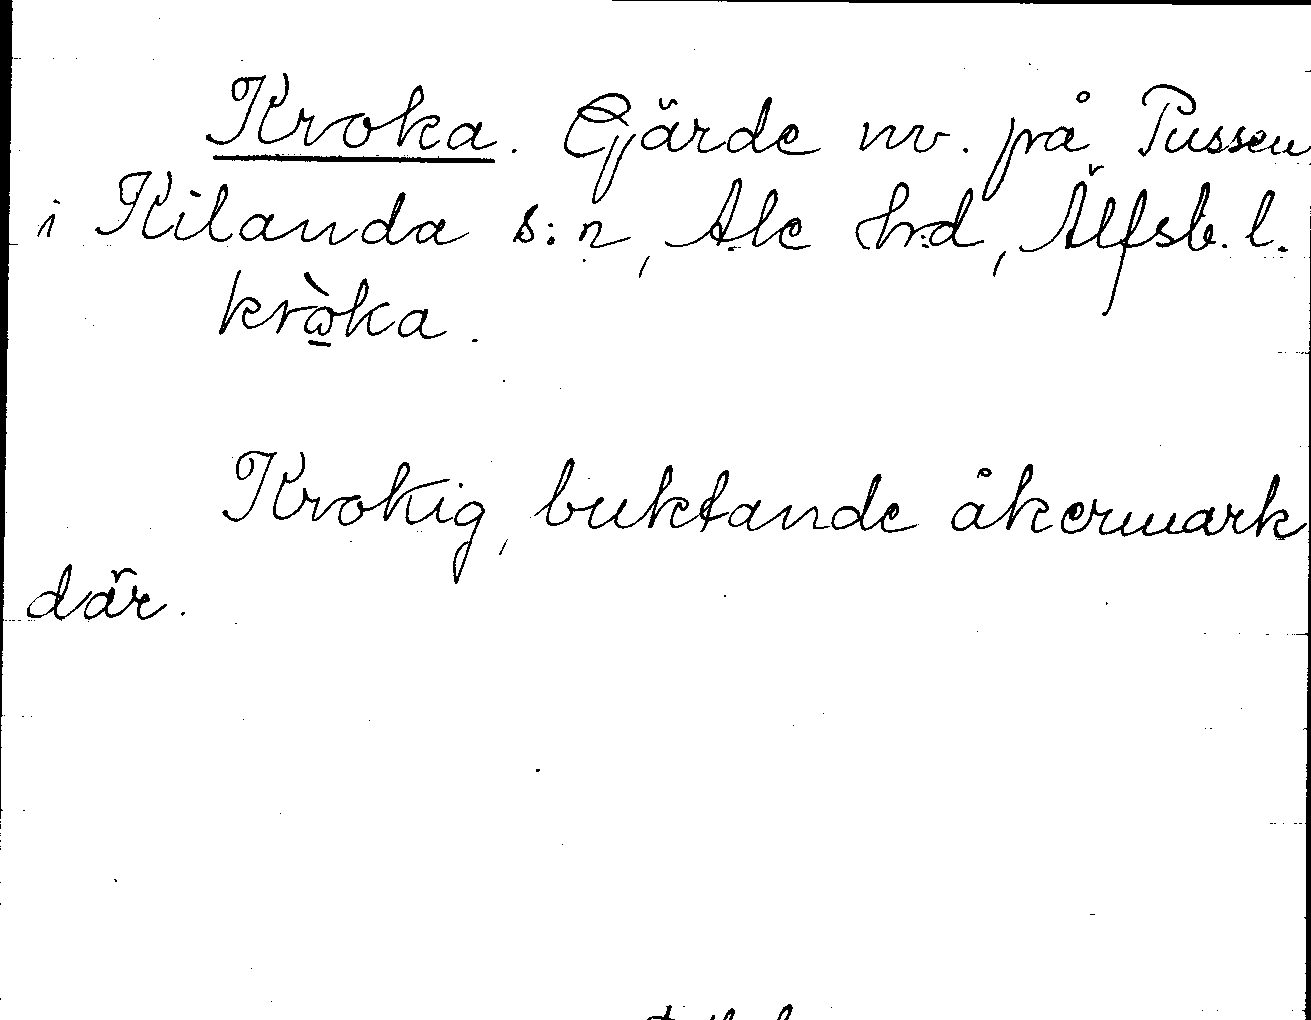 Kroka. Gjärde nv. på Pussen
i Kilanda s:n, Ale h:d, Älfsb. l.
kròka.
Krokig, buktande åkermark
där.